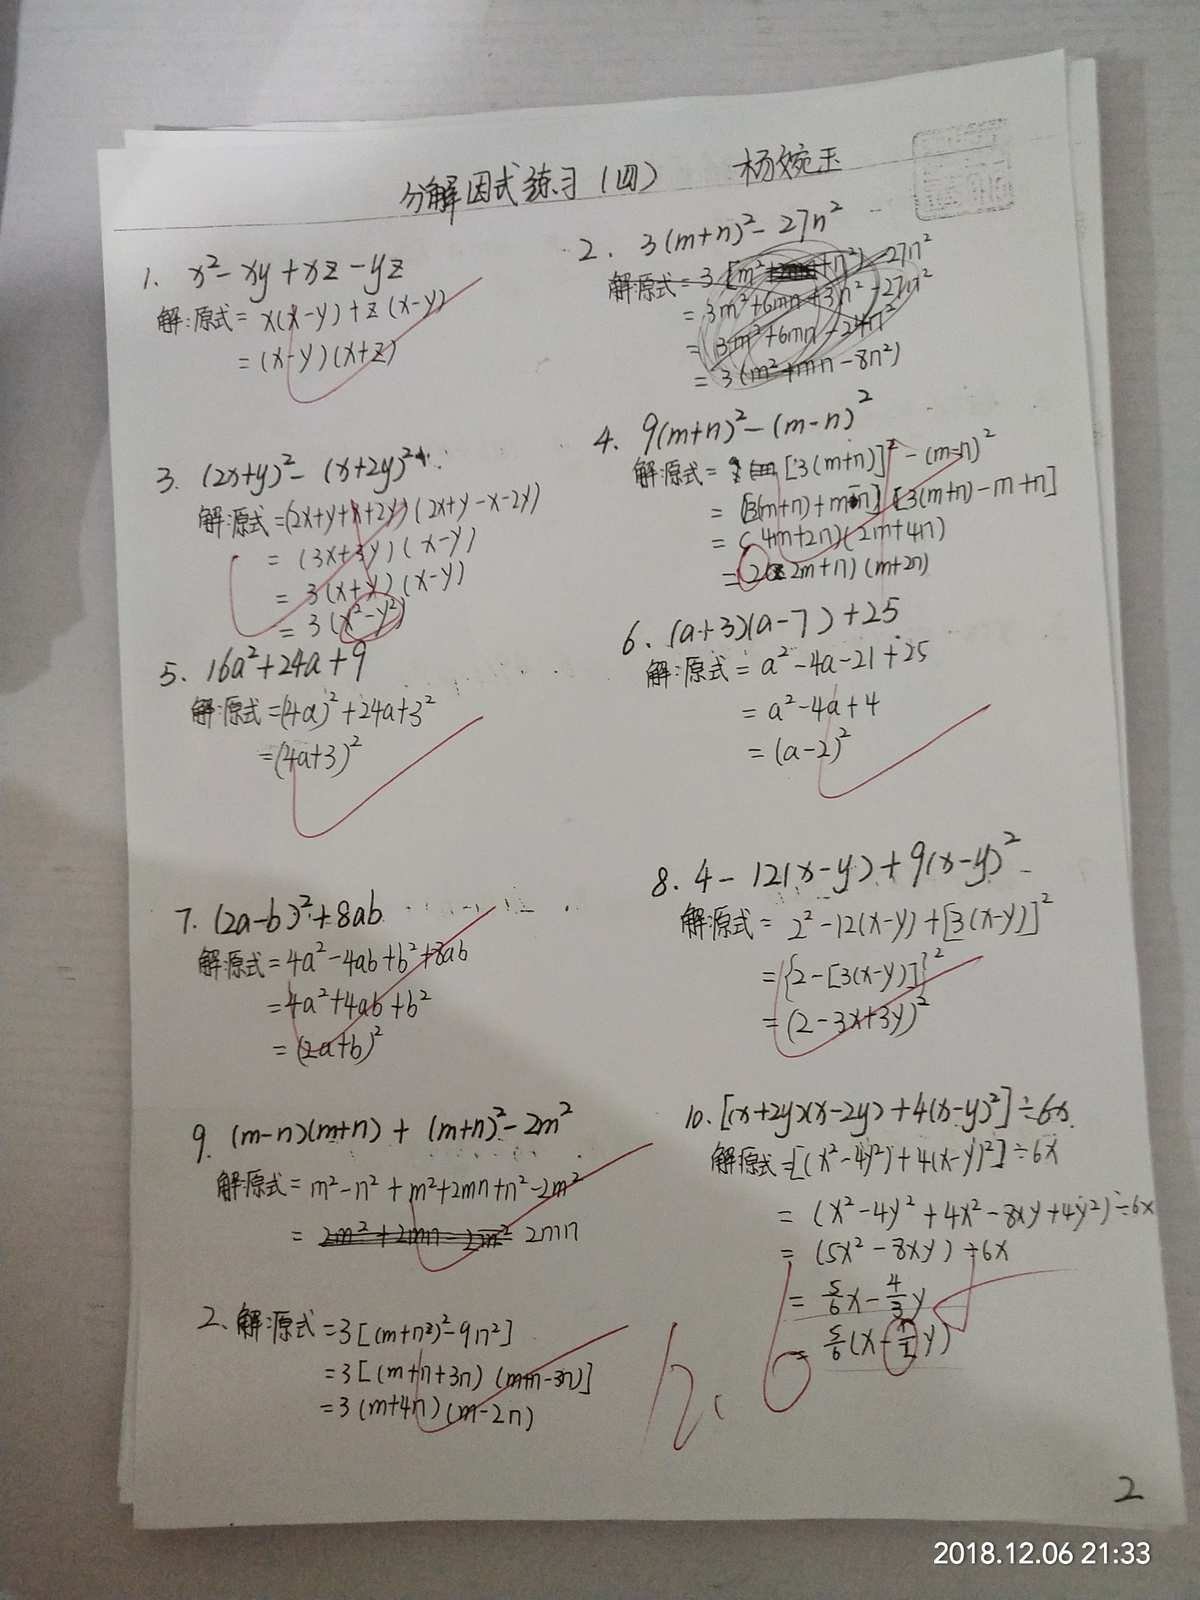 分解因式练习(四) 杨婉玉
1. x²-xy+xz-yz
解:原式=x(x-y)+z(x-y)
=(x-y)(x+z)
2. 3(m+n)²-27n²
解:原式=3[m²+2mn+n²)-27n²
=3m²+6mn+3n²-27n²
=3m²+6mn-24n²
=3(m²+mn-8n²)
3. (2x+y)²-(x+2y)²
解:原式=(2x+y+x+2y)(2x+y-x-2y)
=(3x+3y)(x-y)
=3(x+y)(x-y)
=3(x²-y²)
4. 9(m+n)²-(m-n)²
解:原式=[3(m+n)]²-(m-n)²
=[3(m+n)+m-n][3(m+n)-m+n]
=(4m+2n)(2m+4n)
=2(2m+n)(m+2n)
5. 16a²+24a+9
解:原式=(4a)²+24a+3²
=(4a+3)²
6. (a+3)(a-7)+25
解:原式=a²-4a-21+25
=a²-4a+4
=(a-2)²
7. (2a-b)²+8ab
解:原式=4a²-4ab+b²+8ab
=4a²+4ab+b²
=(2a+b)²
8. 4-12(x-y)+9(x-y)²
解:原式=2²-12(x-y)+[3(x-y)]²
={2-[3(x-y)]}²
=(2-3x+3y)²
9. (m-n)(m+n)+(m+n)²-2m²
解:原式=m²-n²+m²+2mn+n²-2m²
=2m²+2mn-2m² 2mn
10. [(x+2y)(x-2y)+4(x-y)²]÷6x
解:原式=[(x²-4y²)+4(x-y)²]÷6x
=(x²-4y²+4x²-8xy+4y²)÷6x
=(5x²-8xy)÷6x
=5/6x-4/3y
=5/6(x-1/2y)
2、解:原式=3[(m+n²)²-9n²]
=3[(m+n+3n)(m+n-3n)]
=3(m+4n)(m-2n)
2
2018.12.06 21:33